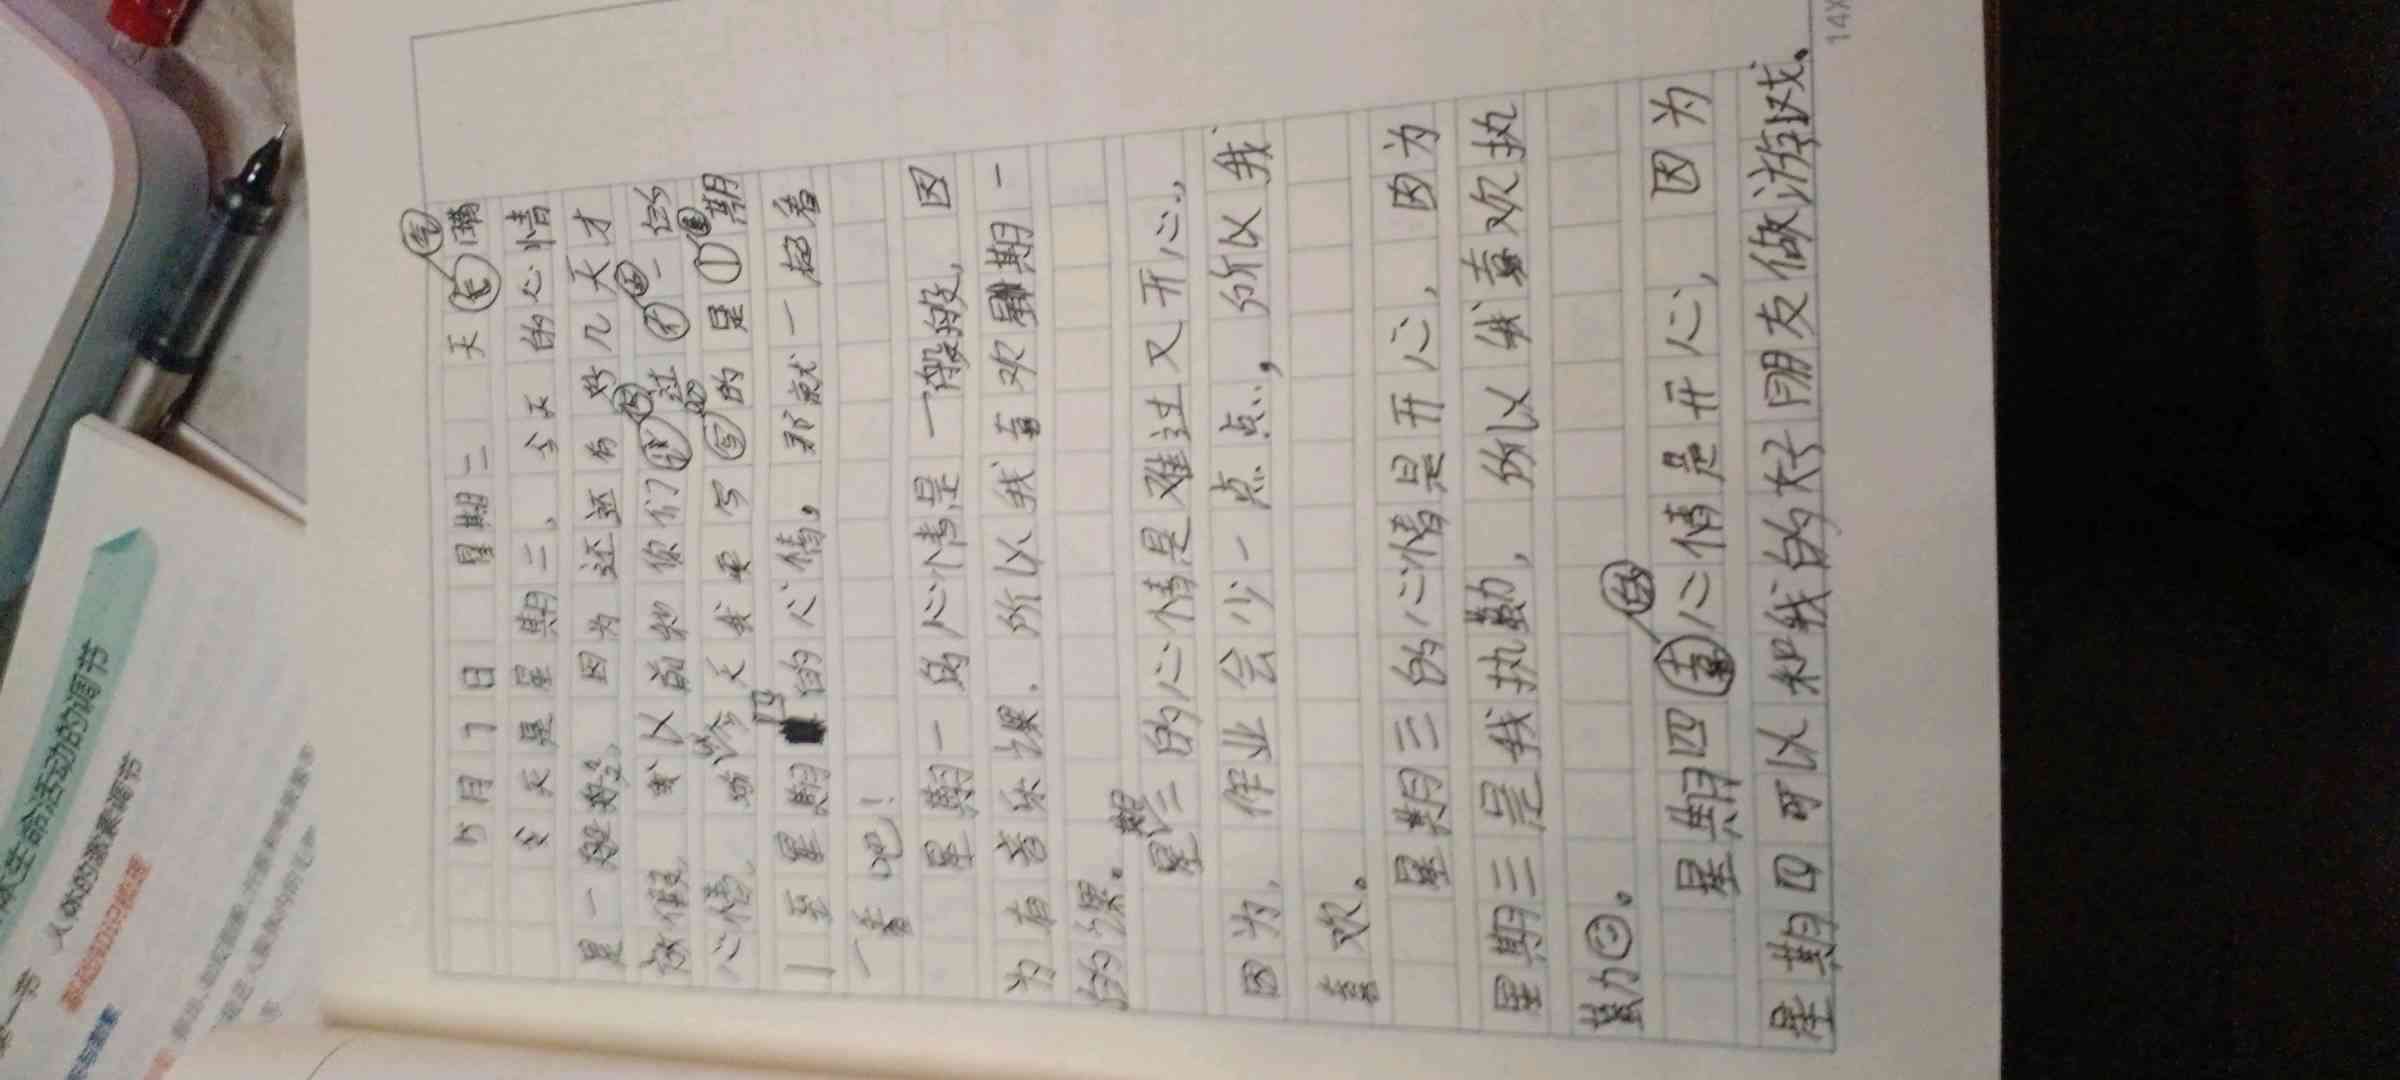 5月7日 星期二 天气晴
今天是星期二，今天的心情
是一般般，因为还还有好几天才
放假，我以前和你们
心情，今天我要写的是星期
一至星期四的心情。那就一起看
一看吧！
星期一的心情是一般般，因
为有音乐课，所以我喜欢星期一
的课。
星期二的心情是难过又开心，
因为，作业会少一点点，所以我
喜欢。
星期三的心情是开心，因为
星期三是我执勤，所以我喜欢执
勤。
星期四的心情是开心，因为
星期四可以和我的好朋友做游戏。
14X
生命活动的调节
人体的激素调节
第一节